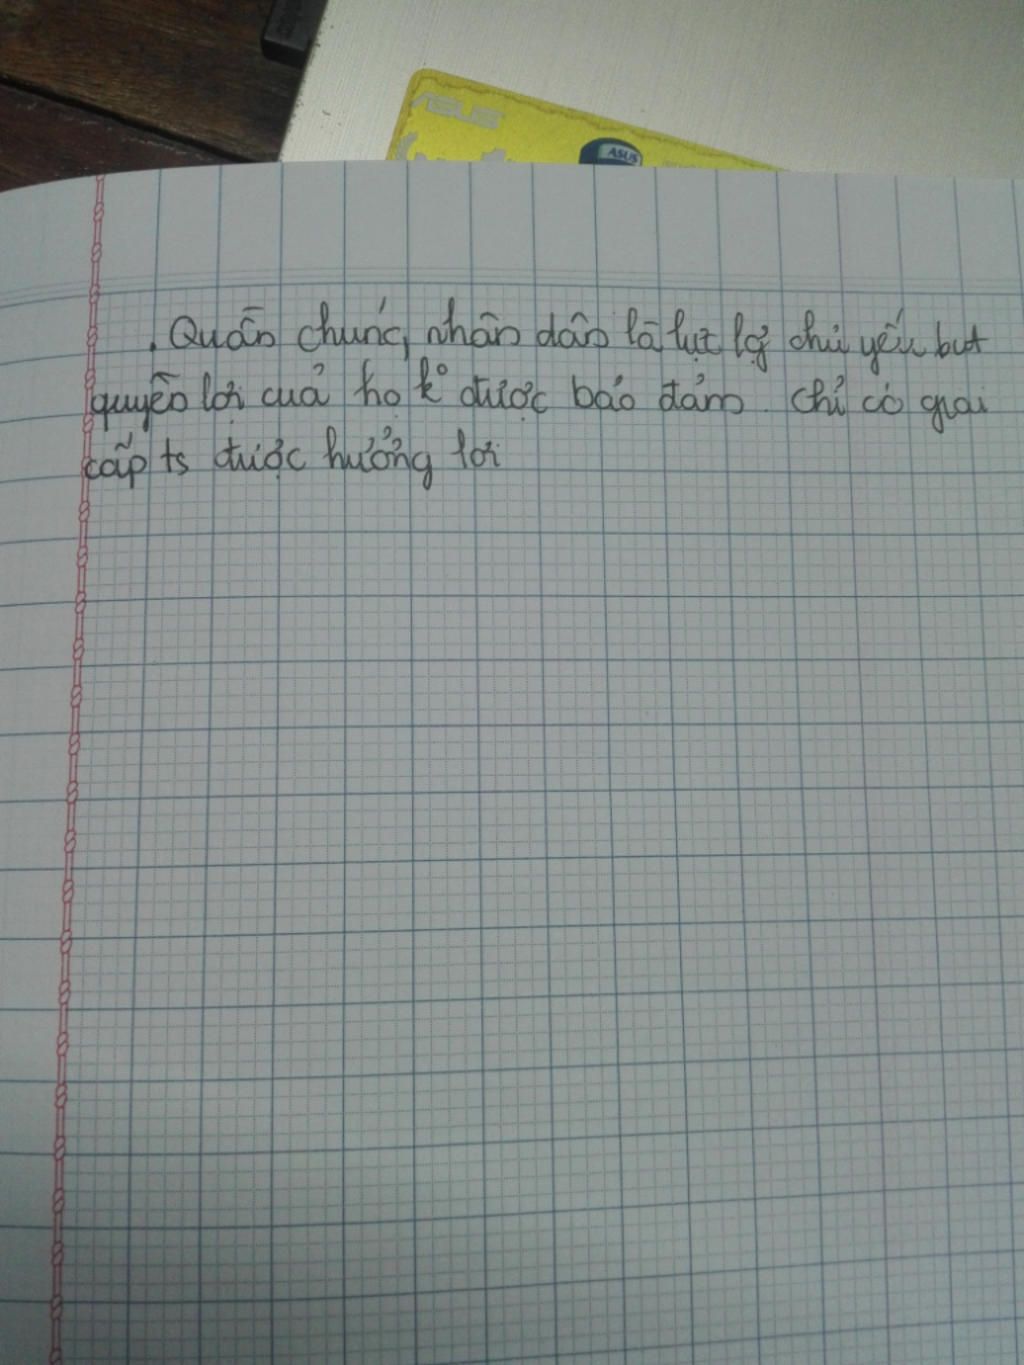 ASUS
ASUS
. Quần chúng, nhân dân là lực lg chủ yếu but
quyền lợi của họ k° được bảo đảm. Chỉ có giai
cấp ts được hưởng lợi